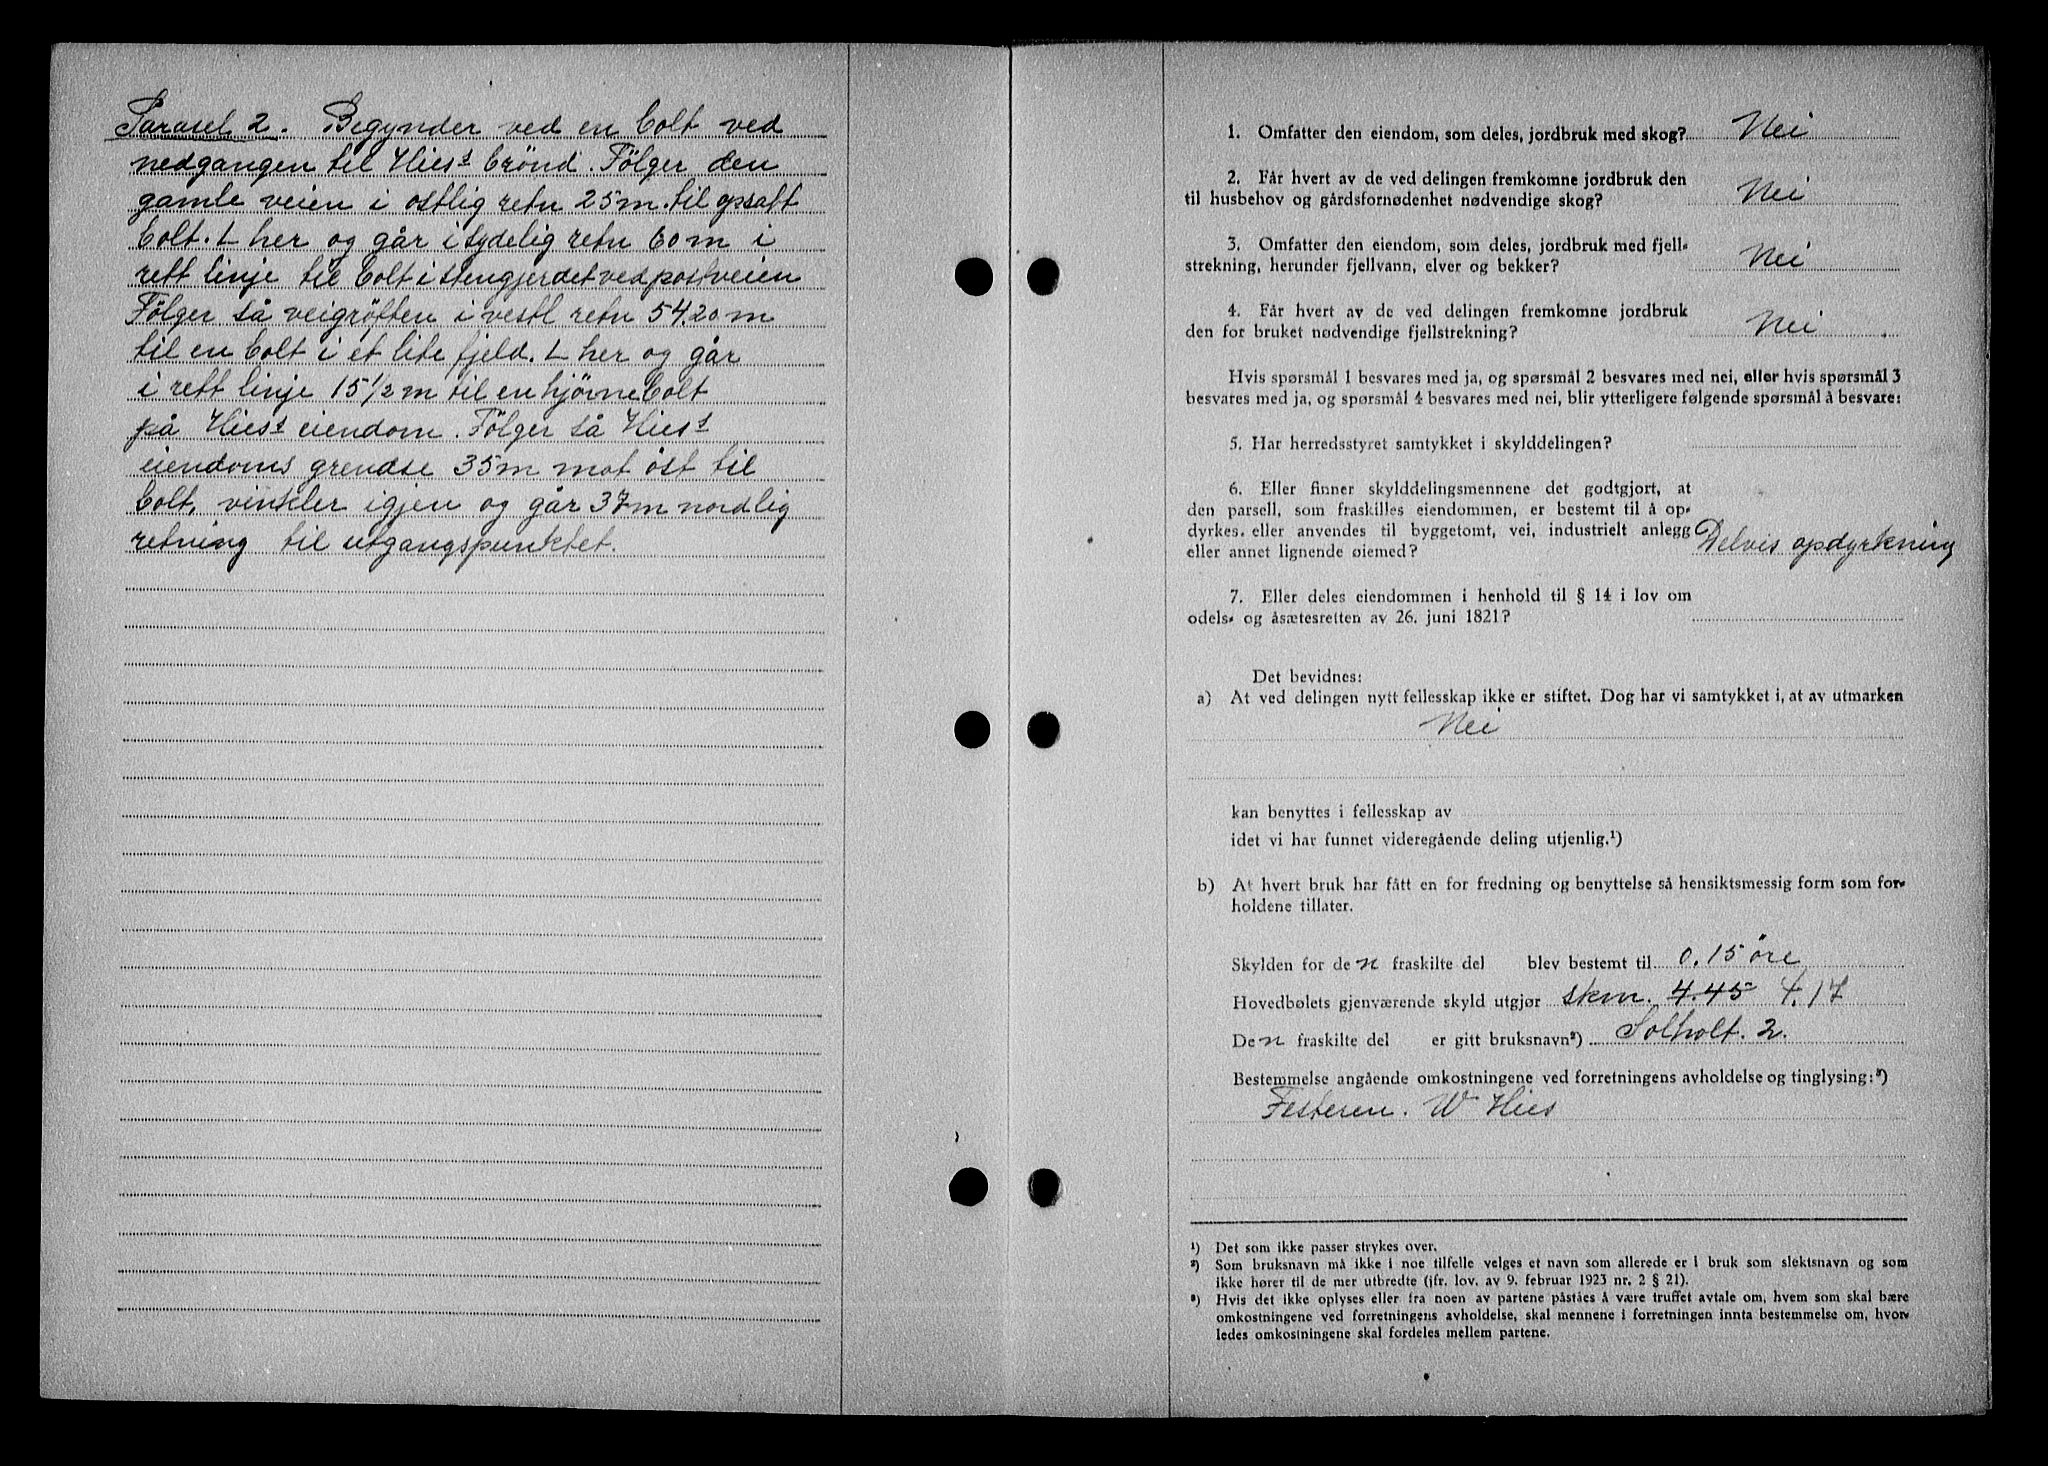 Parasel 2. Begynder ved en bolt ved
nedgangen til Hies's brönd. Fölger den
gamle veien i ostlig retn 25 m. til opsatt
bolt. L her og går i sydelig retn 60 m i
rett linje til bolt i stengjerdet ved postveien
Fölger så veigröften i vestl retn 54.20 m
til en bolt i et lite fjeld. L her og går
i rett linje 15 1/2 m til en hjörnebolt
på Hies's eiendom. Fölger så Hies's
eiendoms grendse 35 m mot öst til
bolt, vinkler igjen og går 37 m nordlig
retning til utgangspunktet.
1. Omfatter den eiendom, som deles, jordbruk med skog? Nei
2. Får hvert av de ved delingen fremkomne jordbruk den
til husbehov og gårdsfornødenhet nødvendige skog? Nei
3. Omfatter den eiendom, som deles, jordbruk med fjell-
strekning, herunder fjellvann, elver og bekker? Nei
4. Får hvert av de ved delingen fremkomne jordbruk
den for bruket nødvendige fjellstrekning? Nei
Hvis spørsmål 1 besvares med ja, og spørsmål 2 besvares med nei, eller hvis spørsmål 3
besvares med ja, og spørsmål 4 besvares med nei, blir ytterligere følgende spørsmål å besvare:
5. Har herredsstyret samtykket i skylddelingen?
6. Eller finner skylddelingsmennene det godtgjort, at
den parsell, som fraskilles eiendommen, er bestemt til å op-
dyrkes, eller anvendes til byggetomt, vei, industrielt anlegg
eller annet lignende øiemed? Delvis opdyrkning
7. Eller deles eiendommen i henhold til § 14 i lov om
odels- og åsætesretten av 26. juni 1821?
Det bevidnes:
a) At ved delingen nytt fellesskap ikke er stiftet. Dog har vi samtykket i, at av utmarken
Nei
kan benyttes i fellesskap av
idet vi har funnet videregående deling utjenlig.¹)
b) At hvert bruk har fått en for fredning og benyttelse så hensiktsmessig form som for-
holdene tillater.
Skylden for den fraskilte del blev bestemt til 0.15 öre
Hovedbølets gjenværende skyld utgjør skm. 4.45 4.17
Den fraskilte del er gitt bruksnavn²) Solholt. 2.
Bestemmelse angående omkostningene ved forretningens avholdelse og tinglysing:³)
Festeren. W Hies
¹) Det som ikke passer strykes over.
²) Som bruksnavn må ikke i noe tilfelle velges et navn som allerede er i bruk som slektsnavn og som
ikke hører til de mer utbredte (jfr. lov. av 9. februar 1923 nr. 2 § 21).
³) Hvis det ikke oplyses eller fra noen av partene påståes å være truffet avtale om, hvem som skal bære
omkostningene ved forretningens avholdelse, skal mennene i forretningen innta bestemmelse om, hvor-
ledes omkostningene skal fordeles mellem partene.